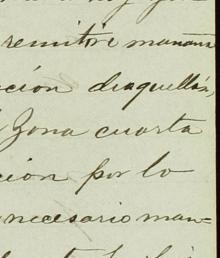 remitiré mañana
ción diaquellán,
Zona cuarta
ción por lo
necesario man-